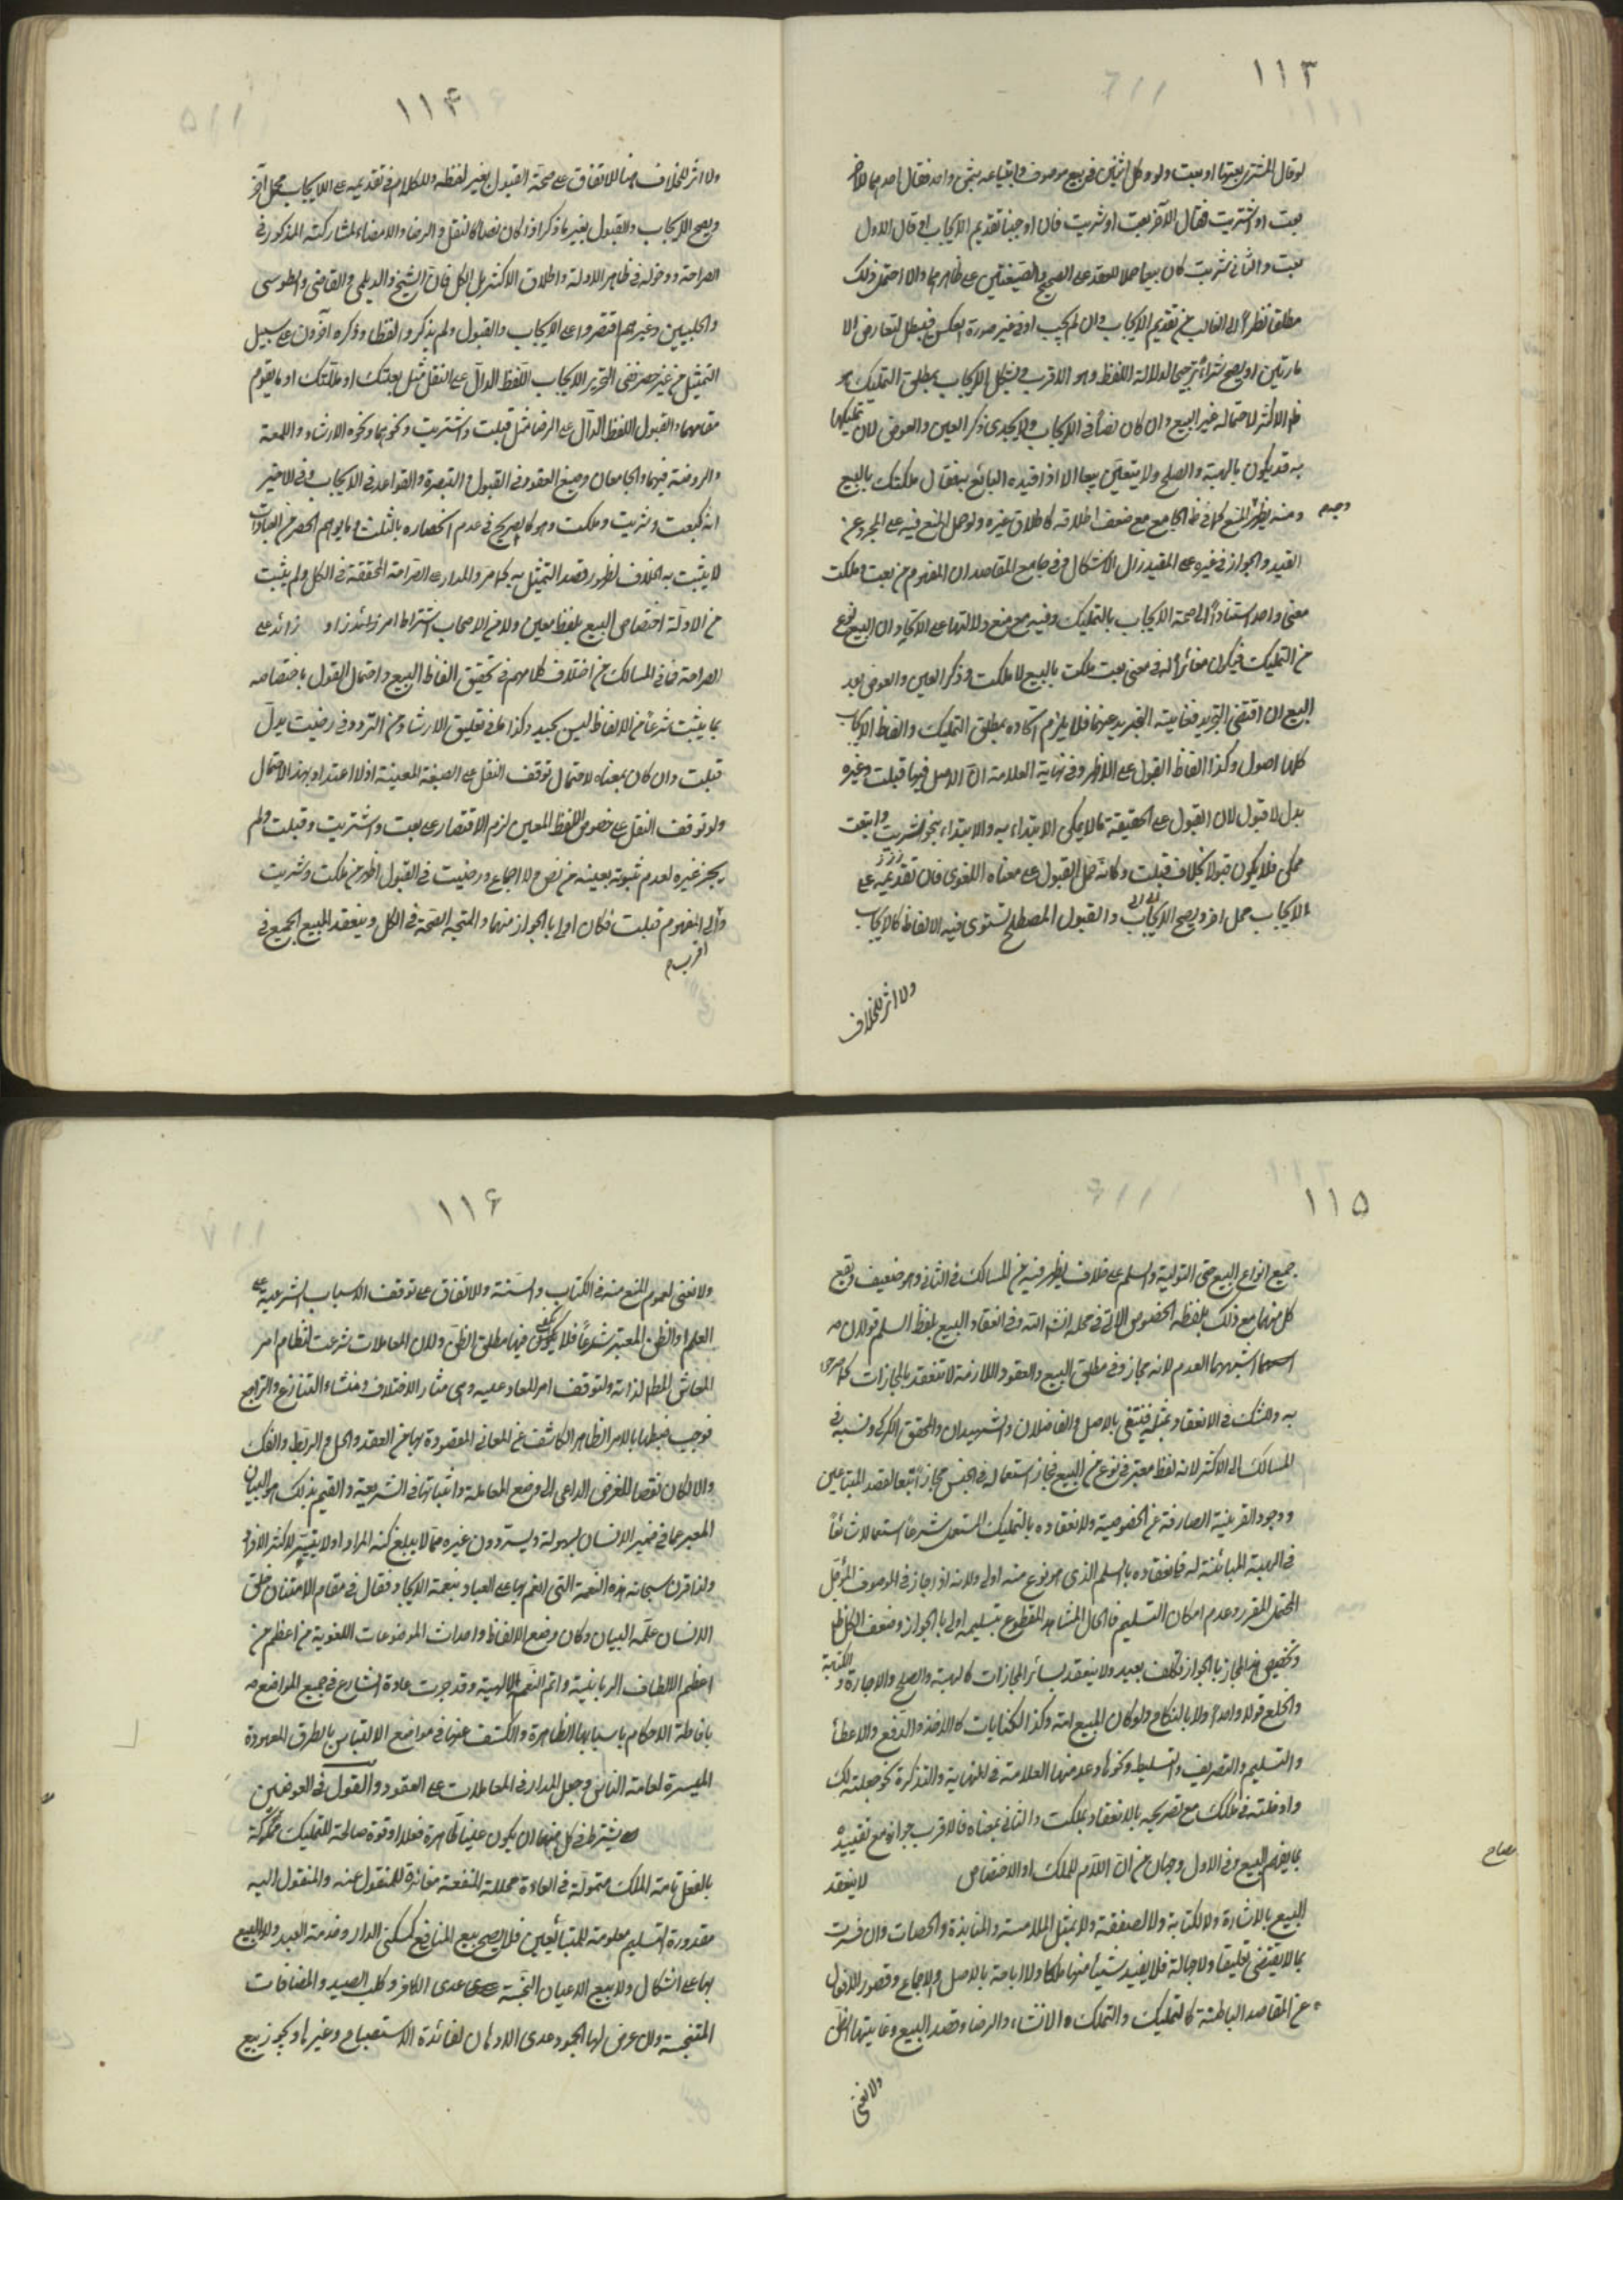 ١١٣
لو قال المشتري بعتها او بعت ولو وكل اثنين في بيع موصوف وابتياعه بثمن واحد فقال احدهما للآخر
بعت او اشتريت فقال الآخر بعت او شريت فان اوجبنا تقديم الايجاب او قال الاول
بعت والثاني شريت كان بيعا حملا للعقد على الصحيح والصيغتين على ظاهرهما والا احتمل ذلك
مطلقا نظرا الى الغالب من تقديم الايجاب وان لم يجب او في غير صورة العكس فيبطل لتعارض الا
مارتين او يصح شراء ترجيحا لدلالة اللفظ وهو الاقرب ويشكل الايجاب بمطلق التمليك
الاكثر لاحتماله غير البيع وان كان نصا في الايجاب ولا يجدي ذكر العين والعوض لان تمليكها
به قد يكون بالهبة والصلح ولا يتعين بيعا الا اذا قيده البائع به فقال ملكتك بالبيع
ومنه يظهر المنع كما في الجامع مع ضعف اطلاقه كاطلاق غيره ولو حمل المنع فيه على المجرد عن
القيد والجواز في غيره على المقيد زال الاشكال وفي جامع المقاصد ان المفهوم من بعت وملكت
معنى واحد استنادا الى صحة الايجاب بالتمليك وفيه مع منع دلالتها على الاتحاد ان البيع نوع
من التمليك فيكون مغائرا له في معنى بعت ملكت بالبيع لا ملكت وذكر العين والعوض بعد
البيع ان اقتضى التجريد فغايته التجريد عنهما فلا يلزم اتحاده بمطلق التمليك والفاظ الايجاب
كلها اصول وكذا الفاظ القبول على الاظهر وفي نهاية العلامة ان الاصل فيها قبلت وغيره
بدل لا قبول لان القبول على الحقيقة ما لا يمكن الابتداء به والابتداء بنحو اشتريت وابتعت
ممكن فلا يكون قبولا بخلاف قبلت وكانه حمل القبول على معناه اللغوي فان تقديمه على
الايجاب محل اخر ويصح الايجاب والقبول المصطلح تستوي فيه الالفاظ كالايجاب
ولا اثر للخلاف
١١٤
ولا اثر للخلاف هنا للاتفاق على صحة القبول بغير لفظه وللكلام في تقديمه على الايجاب محل آخر
ويصح الايجاب والقبول بغير ما ذكر اذا كان نصا كالنقل والرضا والامضاء لمشاركته المذكور في
الصراحة ودخوله في ظاهر الادلة واطلاق الاكثر بل الكل فان الشيخ والديلمي والقاضي والطوسي
والحلبيين وغيرهم اقتصروا على الايجاب والقبول ولم يذكروا لفظا وذكره آخرون على سبيل
التمثيل من غير حصر ففي التحرير الايجاب اللفظ الدال على النقل مثل بعتك او ملكتك او ما يقوم
مقامهما والقبول اللفظ الدال على الرضا مثل قبلت واشتريت ونحوهما ونحوه الارشاد واللمعة
والروضة فيهما والجامعان وصيغ العقود في القبول والتبصرة والقواعد في الايجاب وفي الاخير
انه كبعت وشريت وملكت وهو كالصريح في عدم انحصاره بالثلث وما يوهم الحصر من العبارات
لا يثبت به الخلاف لظهور قصد التمثيل به كما مر والمدار على الصراحة المحققة في الكل ولم يثبت
من الادلة اختصاص البيع بلفظ معين ولا من الاصحاب اشتراط امر زائد على
الصراحة فما في المسالك من اختلاف كلامهم في تحقيق الفاظ البيع واحتمال القول باختصاصه
بما يثبت شرعا من الالفاظ ليس بجيد وكذا ما في تعليق الارشاد من التردد في رضيت بدل
قبلت وان كان بمعناه لاحتمال توقف النقل على الصيغة المعينة اذ لا اعتداد بهذا الاحتمال
ولو توقف النقل على خصوص اللفظ المعين لزم الاقتصار على بعت واشتريت وقبلت ولم
يجز غيره لعدم ثبوته بعينه من نص ولا اجماع ورضيت في القبول اظهر من ملكت وشريت
والى المفهوم قبلت فكان اولى بالجواز منهما والمتجه الصحة في الكل وينعقد البيع الجميع في
اقرب
١١٥
جميع انواع البيع حتى التولية والسلم على خلاف يظهر فيه من المسالك في الثاني وهو ضعيف ويقع
كل منهما مع ذلك بلفظه المخصوص الآتي في محله انشاء الله وفي انعقاد البيع بلفظ السلم قولان
اشبههما العدم لانه مجاز في مطلق البيع والعقود اللازمة لا تنعقد بالمجازات كما صرحوا
به وللشك في الانعقاد بمثله فينتفي بالاصل والفاضلان والشهيدان والمحقق الكركي ونسبه في
المسالك الى الاكثر لانه لفظ معتبر في نوع من البيع فجاز استعماله في الجنس مجازا تبعا لقصد المتبايعين
ووجود القرينة الصارفة عن الخصوصية ولانعقاده بالتمليك المستعمل شرعا استعمالا شائعا
في الهبة المبائنة له فانعقاده بالسلم الذي هو نوع منه اولى ولانه اذا جاز في الموصوف المؤجل
المحتمل للغرر وعدم امكان التسليم فالحال المشاهد المقطوع بتسليمه اولى بالجواز وضعف الكل ظ
وتخصيص هذا المجاز بالجواز تكلف بعيد ولا ينعقد بسائر المجازات كالهبة والصلح والاجارة والكتابة
والخلع قولا واحدا ولا بالنكاح ولو كان المبيع امة وكذا الكنايات كالاخذ والدفع والاعطاء
والتسليم والتصريف والتسليط ونحوها وعد منها العلامة في النهاية والتذكرة نحو جعلته لك
وادخلته في ملكك مع تصريحه بالانعقاد بملكت والثاني بمعناه فالاقرب جوازه مع تقييده
بما يفهم البيع وفي الاول وجهان من ان اللام للملك او الاختصاص لا ينعقد
البيع بالاشارة ولا الكتابة ولا الصفقة ولا بمثل الملامسة والمنابذة والحصات وان فسرت
بما لا يقتضي تعليقا ولا جهالة فلا يفيد شيئا منها ملكا ولا اباحة بالاصل والاجماع وقصور الافعال
عن المقاصد الباطنة كالتمليك والتملك والانشاء والرضا وقصد البيع وغايتها الظن
ولا يغني
١١٦
ولا يغني لعموم المنع منه في الكتاب والسنة وللاتفاق على توقف الاسباب الشرعية على
العلم او الظن المعتبر شرعا فلا يكون فيها مطلق الظن ولان المعاملات شرعت لنظام امر
المعاش المطلوب لذاته ولتوقف امر المعاد عليه وهي مثار الاختلاف ومنشاء التنازع والتراجع
فوجب ضبطها بالامر الظاهر الكاشف عن المعاني المقصودة بها من العقد والحل والربط والفك
والا لكان نقضا للغرض الداعي الى وضع المعاملة واثباتها في الشريعة والقيم بذلك هو البيان
المعبر عما في ضمير الانسان بسهولة ويسر دون غيره مما لا يبلغ كنه المراد او لا يتيسر لاكثر الافراد
ولذا قرن سبحانه هذه النعمة التي انعم بها على العباد بنعمة الايجاد فقال في مقام الامتنان خلق
الانسان علمه البيان وكان وضع الالفاظ واحداث الموضوعات اللغوية من اعظم من
اعظم الالطاف الربانية واتم النعم الالهية وقد جرت عادة الشارع في جميع المواضع
باناطة الاحكام باسبابها الظاهرة والكشف عنها في مواضع الالتباس بالطرق المعهودة
الميسرة لعامة الناس وجعل المدار في المعاملات على العقود والقول في العوضين
يشترط في كل منهما ان يكون عينا طاهرة فعلا او قوة صالحة للتمليك مملوكة
بالفعل تامة الملك متمولة في العادة محللة المنفعة مغائرة للمنقول عنه والمنقول اليه
مقدورة التسليم معلومة للمتبائعين فلا يصح بيع المنافع كسكنى الدار وخدمة العبد ولا البيع
بها على اشكال ولا بيع الاعيان النجسة عدى الكافر وكلب الصيد والمضافات
المتنجسة ولان عرض لها الجمود عدى الادهان لفائدة الاستصباح وغيرها ويجوز بيع